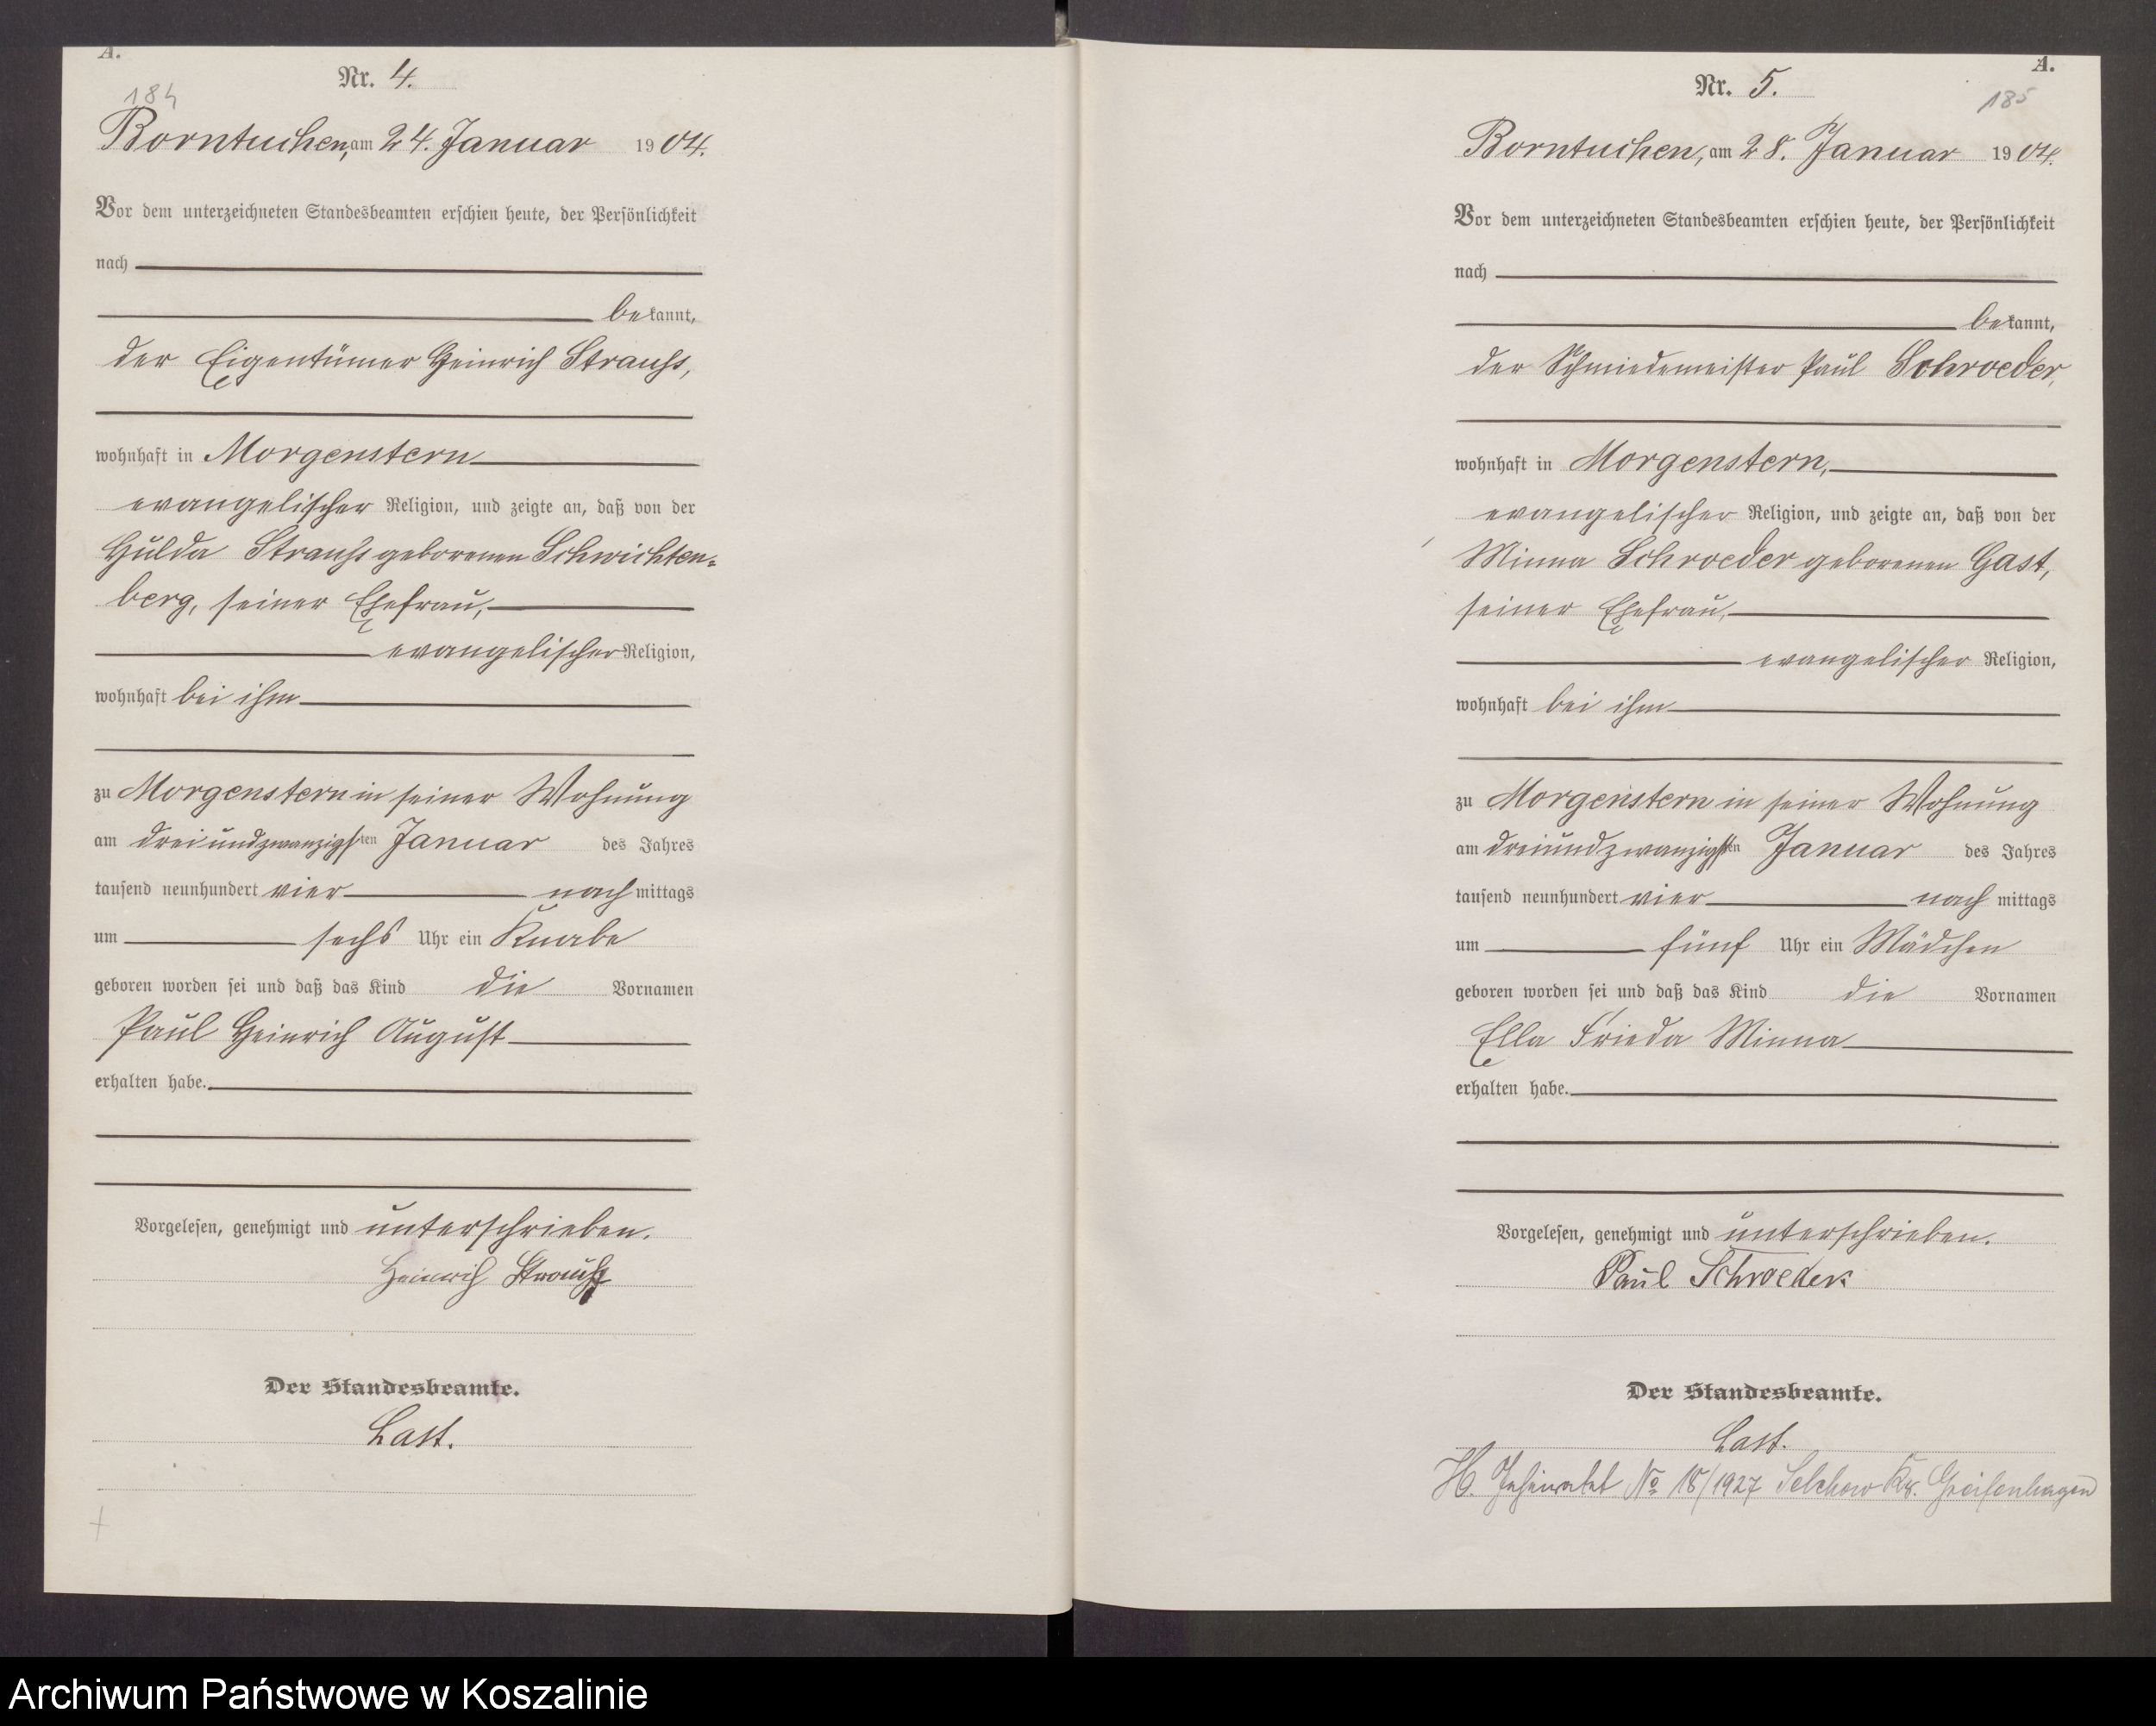 A.
184
Nr. 4.
Borntuchen, am 24. Januar 1904.
Vor dem unterzeichneten Standesbeamten erschien heute, der Persönlichkeit
nach
bekannt,
der Eigentümer Heinrich Strauß,
wohnhaft in Morgenstern
evangelischer Religion, und zeigte an, daß von der
Hulda Strauß geborenen Schwichten-
berg, seiner Ehefrau,
evangelischer Religion,
wohnhaft bei ihm
zu Morgenstern in seiner Wohnung
am dreiundzwanzigsten Januar des Jahres
tausend neunhundert vier nachmittags
um sechs Uhr ein Knabe
geboren worden sei und daß das Kind die Vornamen
Paul Heinrich August
erhalten habe.
Vorgelesen, genehmigt und unterschrieben.
Heinrich Strauß
Der Standesbeamte.
Last.
A.
185
Nr. 5.
Borntuchen, am 28. Januar 1904.
Vor dem unterzeichneten Standesbeamten erschien heute, der Persönlichkeit
nach
bekannt,
der Schmiedemeister Paul Schroeder,
wohnhaft in Morgenstern,
evangelischer Religion, und zeigte an, daß von der
Minna Schroeder geborenen Gast,
seiner Ehefrau,
evangelischer Religion,
wohnhaft bei ihm
zu Morgenstern in seiner Wohnung
am dreiundzwanzigsten Januar des Jahres
tausend neunhundert vier nachmittags
um fünf Uhr ein Mädchen
geboren worden sei und daß das Kind die Vornamen
Ella Frieda Minna
erhalten habe.
Vorgelesen, genehmigt und unterschrieben.
Paul Schroeder.
Der Standesbeamte.
Last.
H. No 18/1927 Selchow Kr. Greifenhagen
Archiwum Państwowe w Koszalinie